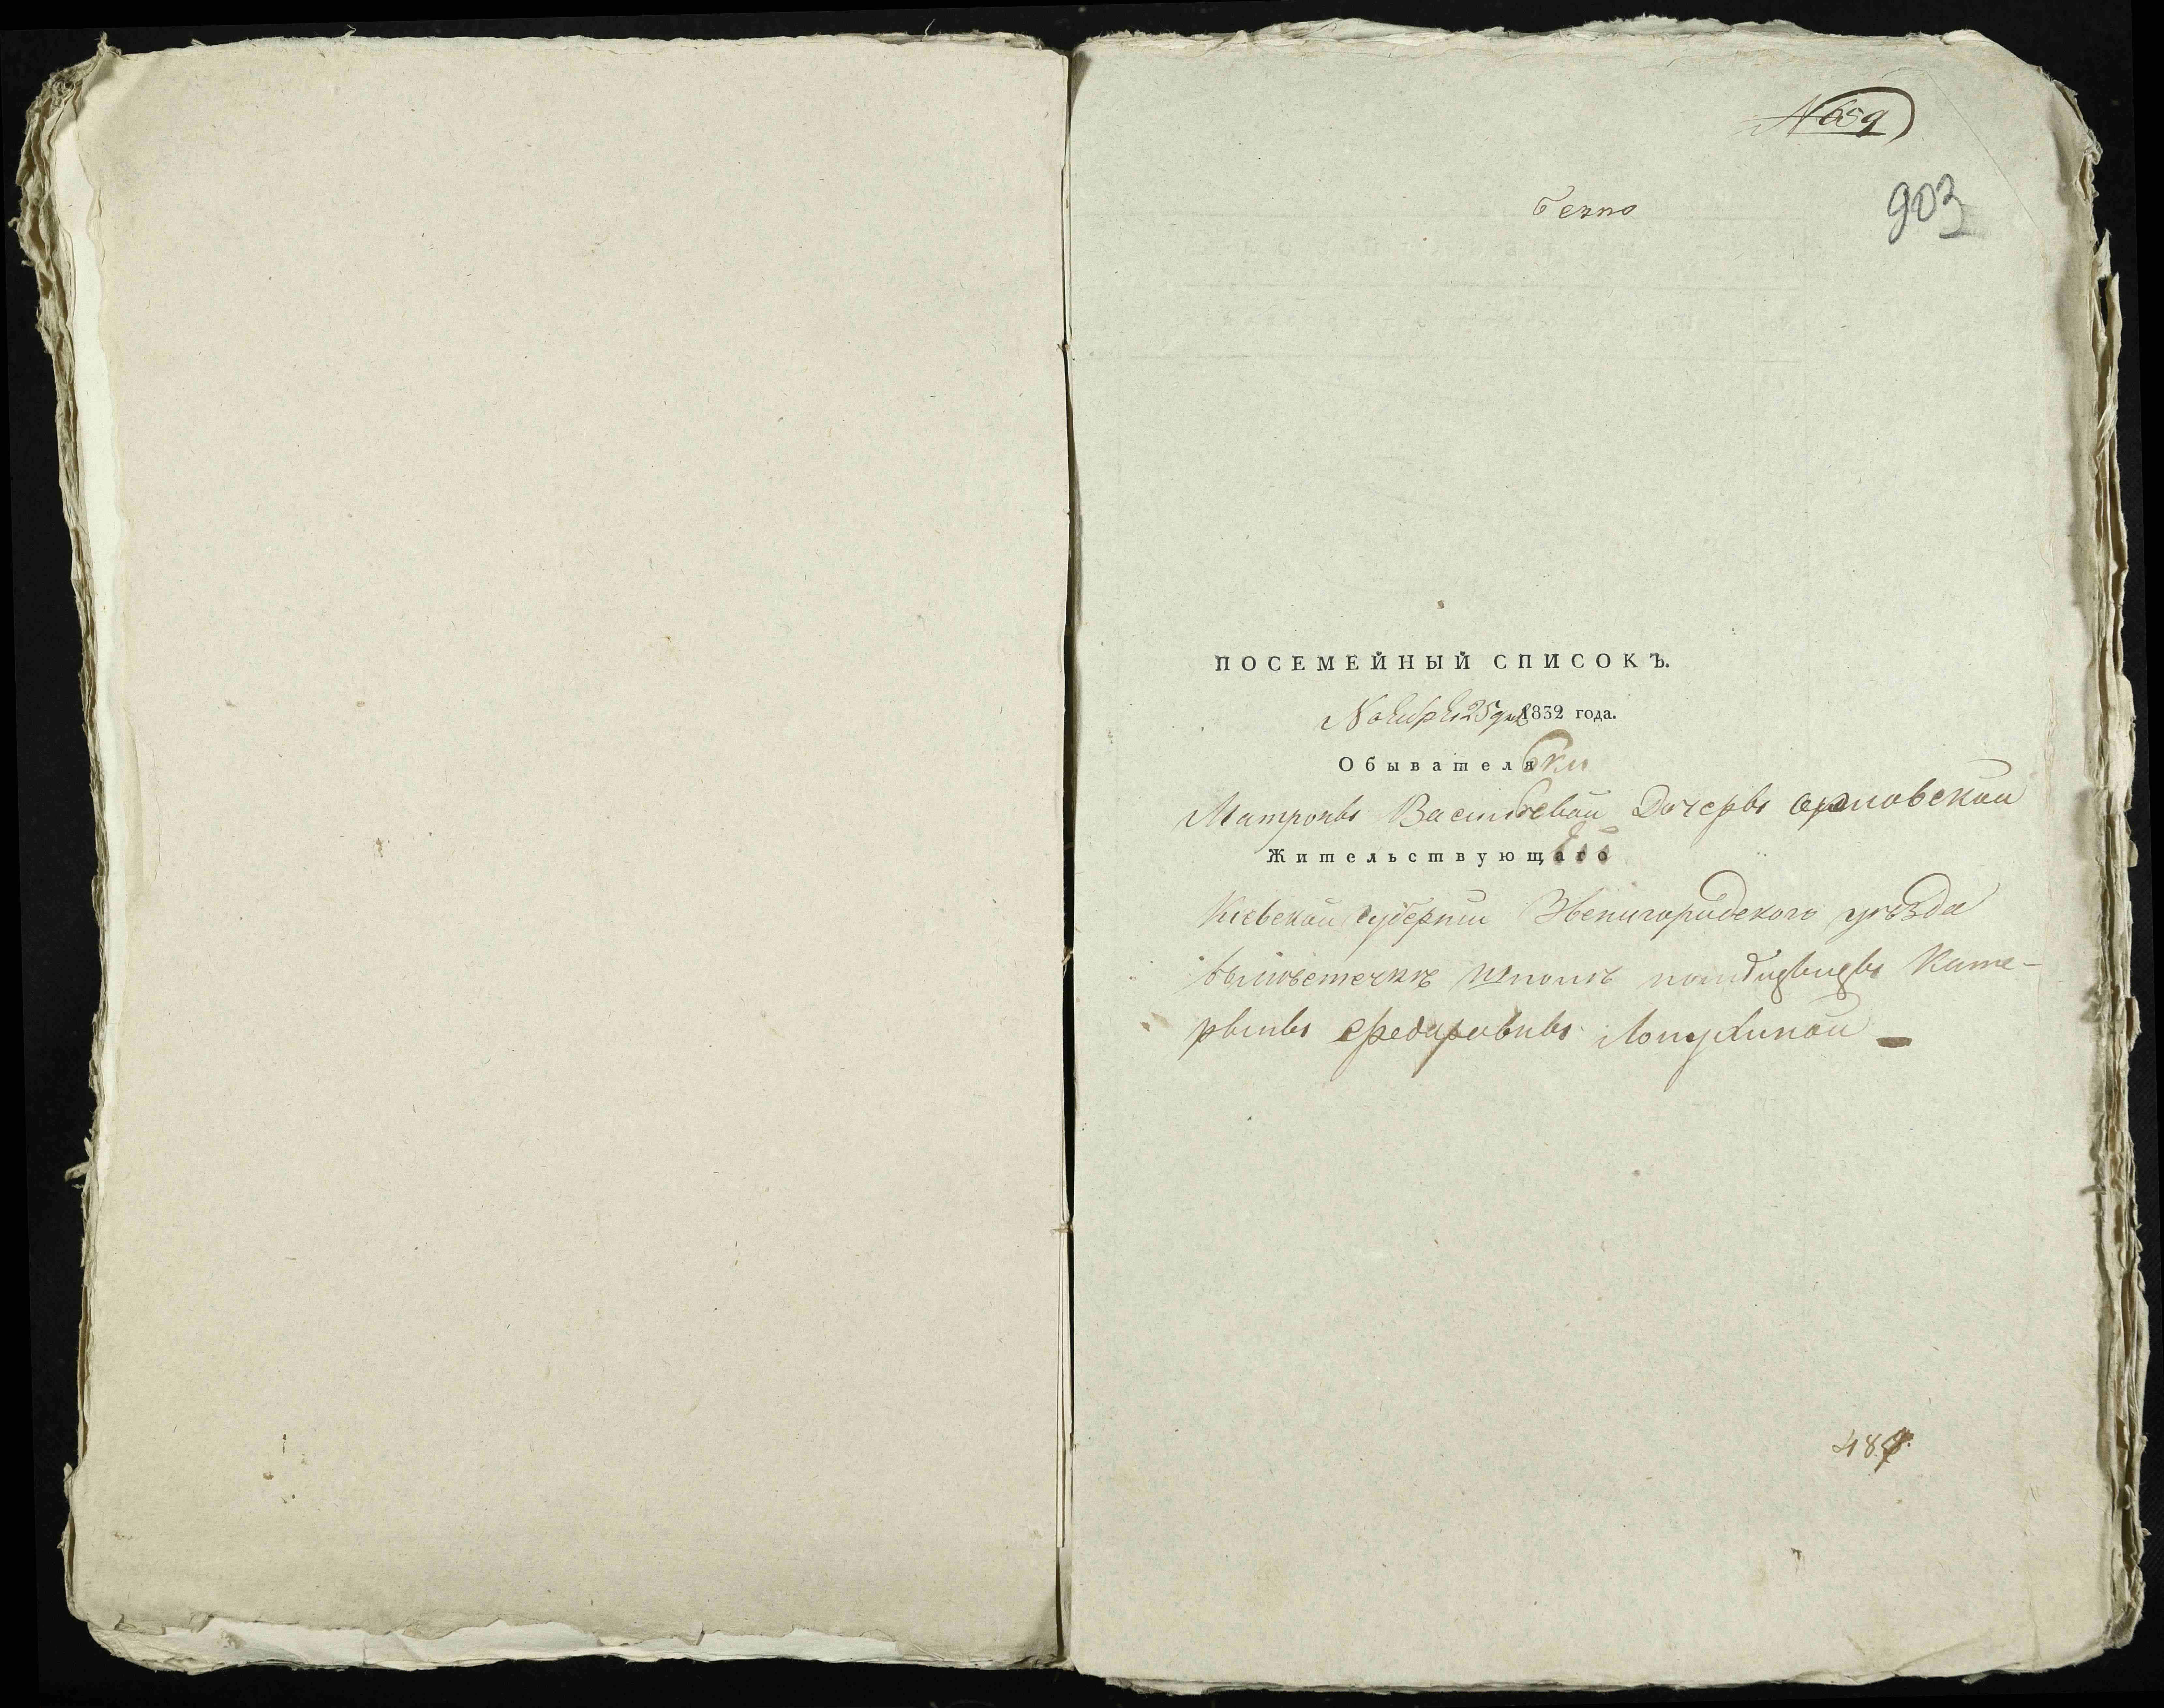 N 659
903
ПОСЕМЕЙНЫЙ СПИСОКЪ.
Ноября 25 дня 1832 года.
Обывательки
Матроны Васильевой Дочеры орловской
Жительствующей
Киевской губернии Звенигородского уѣзда
вьмѣстечкѣ шполѣ Кате-
рыны Федоровны Лопухиной
487.